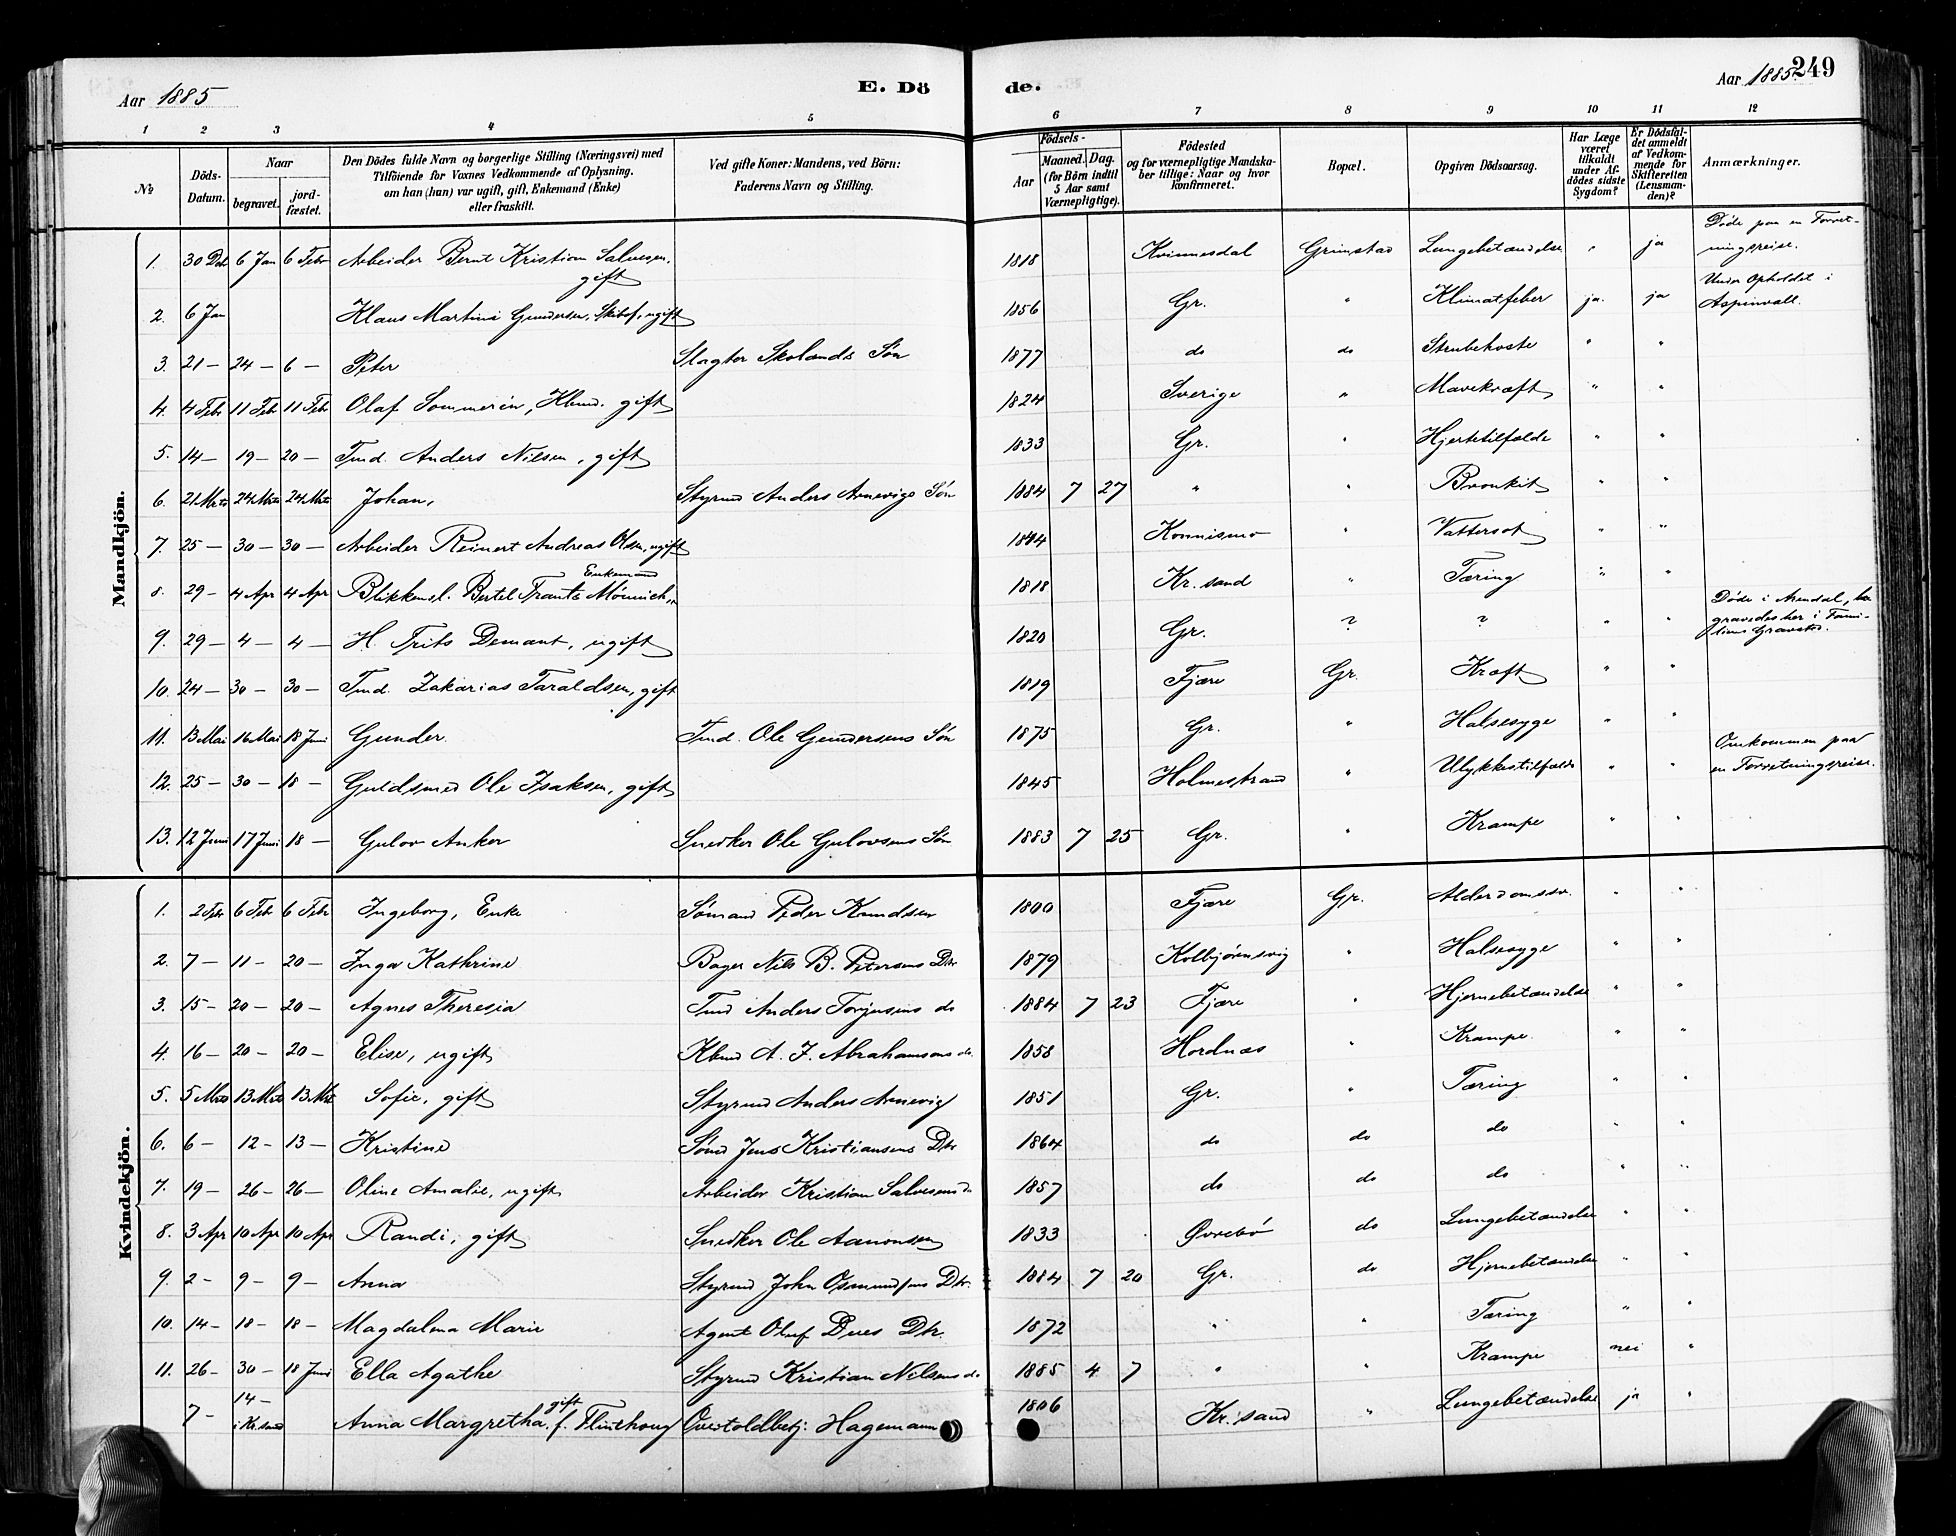 Aar 1885
E. Dö
de.
Aar 1885.
249
1 2 3 4 5 6 7 8 9 10 11 12
№
Döds-Datum.
Naar
begravet.
jord-fæstet.
Den Dödes fulde Navn og borgerlige Stilling (Næringsvei) med
Tilföiende for Voxnes Vedkommende af Oplysning.
om han (hun) var ugift, gift, Enkemand (Enke)
eller fraskilt.
Ved gifte Koner: Mandens, ved Börn:
Faderens Navn og Stilling.
Födsels-
Aar
Maaned. Dag.
(for Börn indtil
5 Aar samt
Værnepligtige).
Födested
og for værnepligtige Mandska-
ber tillige: Naar og hvor
konfirmeret.
Bopæl.
Opgiven Dödsaarsag.
Har Læge
været
tilkaldt
under Af-
dödes sidste
Sygdom?
Er Dödsfal-
det anmeldt
af Vedkom-
mende for
Skifteretten
(Lensman-
den)?
Anmærkninger.
Mandkjön.
1. 30 Dec 6 Jan 6 Febr Arbeider Bernt Kristian Salvesen, gift 1818 Kvinnesdal Grimstad Lungebetændelse " ja Døde paa en Forret-
ningsreise.
2. 6 Jan Klaus Martini Gundersen, Skibsf., ugift 1856 Gr. " Klimatfeber ja. ja Under Opholdet i
Aspinvall.
3. 21 – 24 – 6 – Peter Slagter Skolands Søn 1877 do do Strubehoste " "
4. 4 Febr 11 Febr 11 Febr Olaf Sommerin, Kbmd. gift 1824 Sverige " Mavekræft " "
5. 14 – 19 – 20 – Tmd. Anders Nilsen, gift 1833 Gr. " Hjertetilfælde " "
6. 21 Mrts 24 Mrts 24 Mrts Johan, Styrmd Anders Arnevigs Søn 1884 7 27 " " Bronkit " "
7. 25 – 30 – 30 – Arbeider Reinert Andreas Olsen, ugift 1844 Konnismo " Vattersot " "
8. 29 – 4 Apr 4 Apr Blikkensl. Bertel Frantz Mønnich, Enkemand 1818 Kr. sand " Tæring " "
9. 29 – 4 – 4 – H. Frits Demant, ugift 1820 Gr. ? ? " " Døde i Arendal, be-
gravedes her i Fami-
liens Gravsted.
10. 24 – 30 – 30 – Tmd. Zakarias Taraldsen, gift 1819 Fjære Gr. Kræft " "
11. 13 Mai 16 Mai 18 Juni Gunder Tmd. Ole Gundersens Søn 1875 Gr. " Halsesyge " "
12. 25 – 30 – 18 – Guldsmed Ole Isaksen, gift 1845 Holmestrand " Ulykkestilfælde " " Omkommen paa
en Forretningsreise.
13. 12 Juni 17 Juni 18 – Gulov Anker Snedker Ole Gulovsens Søn 1883 7 25 Gr. " Krampe " "
Kvindekjön.
1. 2 Febr 6 Febr 6 Febr Ingeborg, Enke Sømand Peder Knudsen 1800 Fjære Gr. Alderdomssv. " "
2. 7 – 11 – 20 – Inga Kathrine Bager Nils B. Petersens Dtr 1879 Kolbjørnsvig " Halsesyge " "
3. 15 – 20 – 20 – Agnes Theresia Tmd Anders Torjusens do 1884 7 23 Fjære " Hjernebetændelse " "
4. 16 – 20 – 20 – Elise, ugift Kbmd A. F. Abrahamsens do 1858 Hordnæs " Krampe. " "
5. 5 Mrts 13 Mrts 13 Mrt Sofie, gift Styrmd Anders Arnevig 1851 Gr. " Tæring " "
6. 6 – 12 – 13 – Kristine Sømd Jens Kristiansens Dtr 1864 do do do " "
7. 19 – 26 – 26 – Oline Amalie, ugift Arbeider Kristian Salvesens do 1857 do do do " "
8. 3 Apr 10 Apr 10 Apr Randi, gift Snedker Ole Aanonsen 1833 Øvrebø do Lungebetændelse " "
9. 2 – 9 – 9 – Anna Styrmd John Osmundsens Dtr. 1884 7 20 Gr. do Hjernebetændelse " "
10. 14 – 18 – 18 – Magdalena Marie Agent Oluf Dues Dtr. 1872 " " Tæring " "
11. 26 – 30 – 18 Juni Ella Agathe Styrmd Kristian Nilsens do 1885 4 7 " " Krampe nei "
7 – 14 – i Kr. sand Anna Margretha gift f. Flinthoug Overtoldbetj: Hagemann 1806 Kr. sand " Lungebetændelse ja "